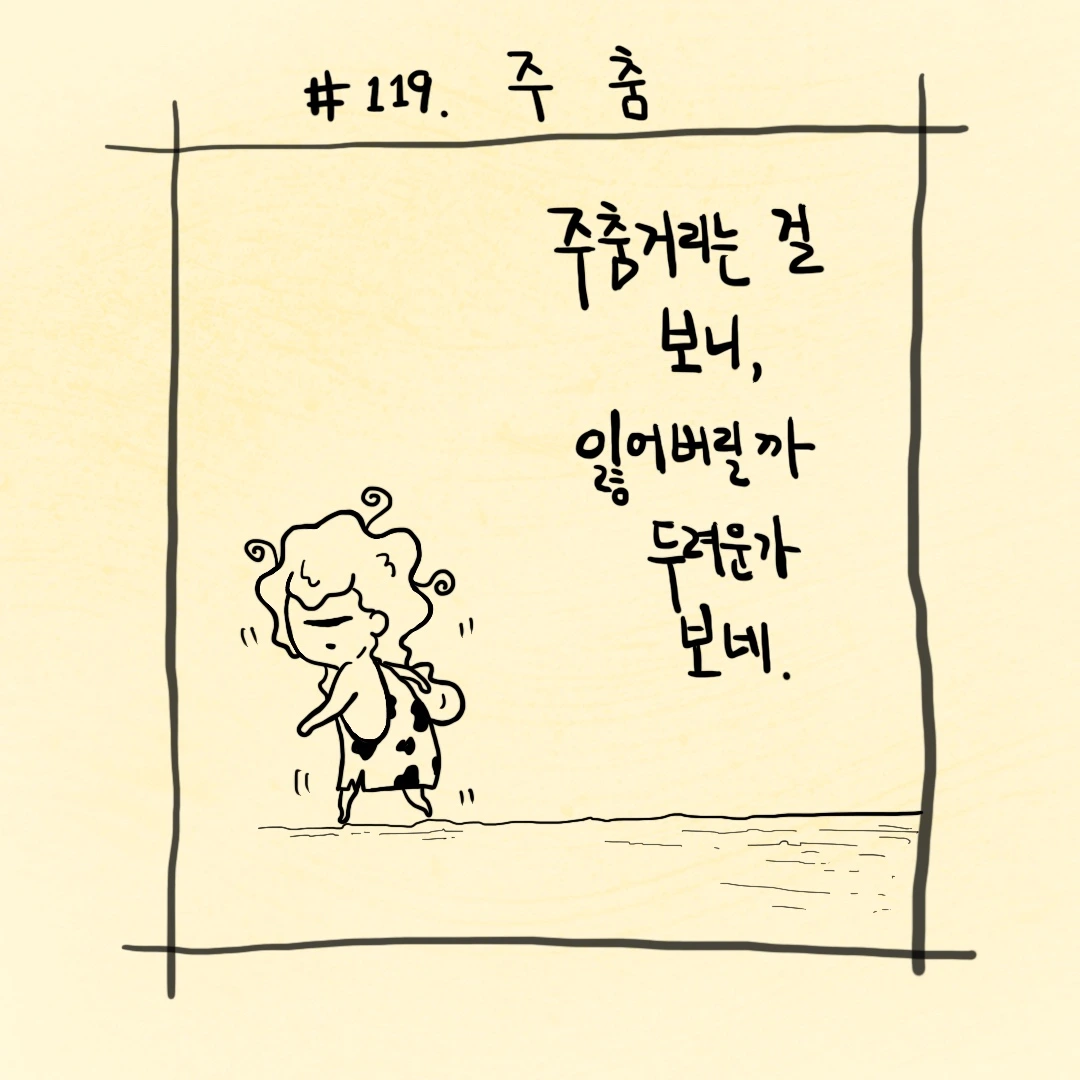 #119. 주 춤
주춤거리는 걸
보니,
잃어버릴까
두려운가
보네.